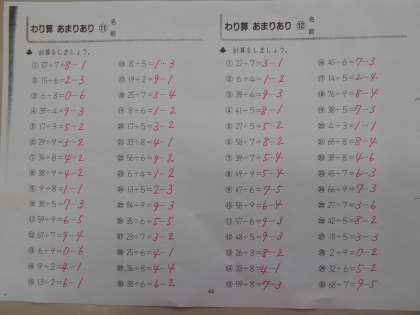 わり算 あまりあり ⑪ 名前
計算をしましょう。
① 57÷7=8-1
② 15÷6=2-3
③ 6÷8=0-6
④ 39÷4=9-3
⑤ 17÷3=5-2
⑥ 29÷9=3-2
⑦ 34÷8=4-2
⑧ 38÷9=4-2
⑨ 9÷8=1-1
⑩ 38÷5=7-3
⑪ 59÷9=6-5
⑫ 67÷7=9-4
⑬ 6÷9=0-6
⑭ 9÷2=4-1
⑮ 13÷2=6-1
⑯ 8÷5=1-3
⑰ 19÷2=9-1
⑱ 25÷7=3-4
⑲ 8÷6=1-2
⑳ 17÷5=3-2
㉑ 33÷8=4-1
㉒ 56÷6=9-2
㉓ 6÷4=1-2
㉔ 13÷5=2-3
㉕ 84÷9=9-3
㉖ 35÷6=5-5
㉗ 23÷7=3-2
㉘ 25÷6=4-1
㉙ 36÷8=4-4
㉚ 38÷6=6-2
わり算 あまりあり ⑫ 名前
計算をしましょう。
① 22÷7=3-1
② 6÷4=1-2
③ 39÷4=9-3
④ 41÷5=8-1
⑤ 27÷5=5-2
⑥ 58÷7=8-2
⑦ 39÷7=5-4
⑧ 49÷9=5-4
⑨ 47÷6=7-5
⑩ 58÷9=6-4
⑪ 57÷6=9-3
⑫ 48÷5=9-3
⑬ 26÷3=8-2
⑭ 33÷8=4-1
⑮ 59÷8=7-3
⑯ 45÷6=7-3
⑰ 14÷5=2-4
⑱ 76÷9=8-4
⑲ 38÷5=7-3
⑳ 4÷3=1-1
㉑ 68÷8=8-4
㉒ 38÷8=4-6
㉓ 45÷7=6-3
㉔ 66÷9=7-3
㉕ 27÷7=3-6
㉖ 42÷5=8-2
㉗ 18÷5=3-3
㉘ 2÷9=0-2
㉙ 32÷6=5-2
㉚ 68÷7=9-5